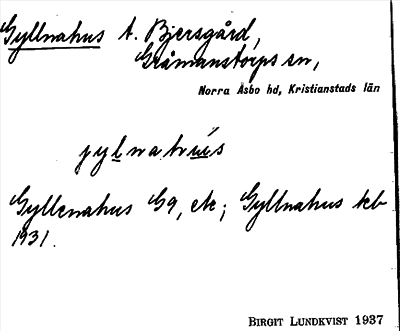 Gyllnahus t. Bjersgård,
Gråmanstorps sn,
Norra Åsbo hd, Kristianstads län
Gyllenahus G9, etc; Gyllnahus tcb
1931.
BIRGIT LUNDKVIST 1937